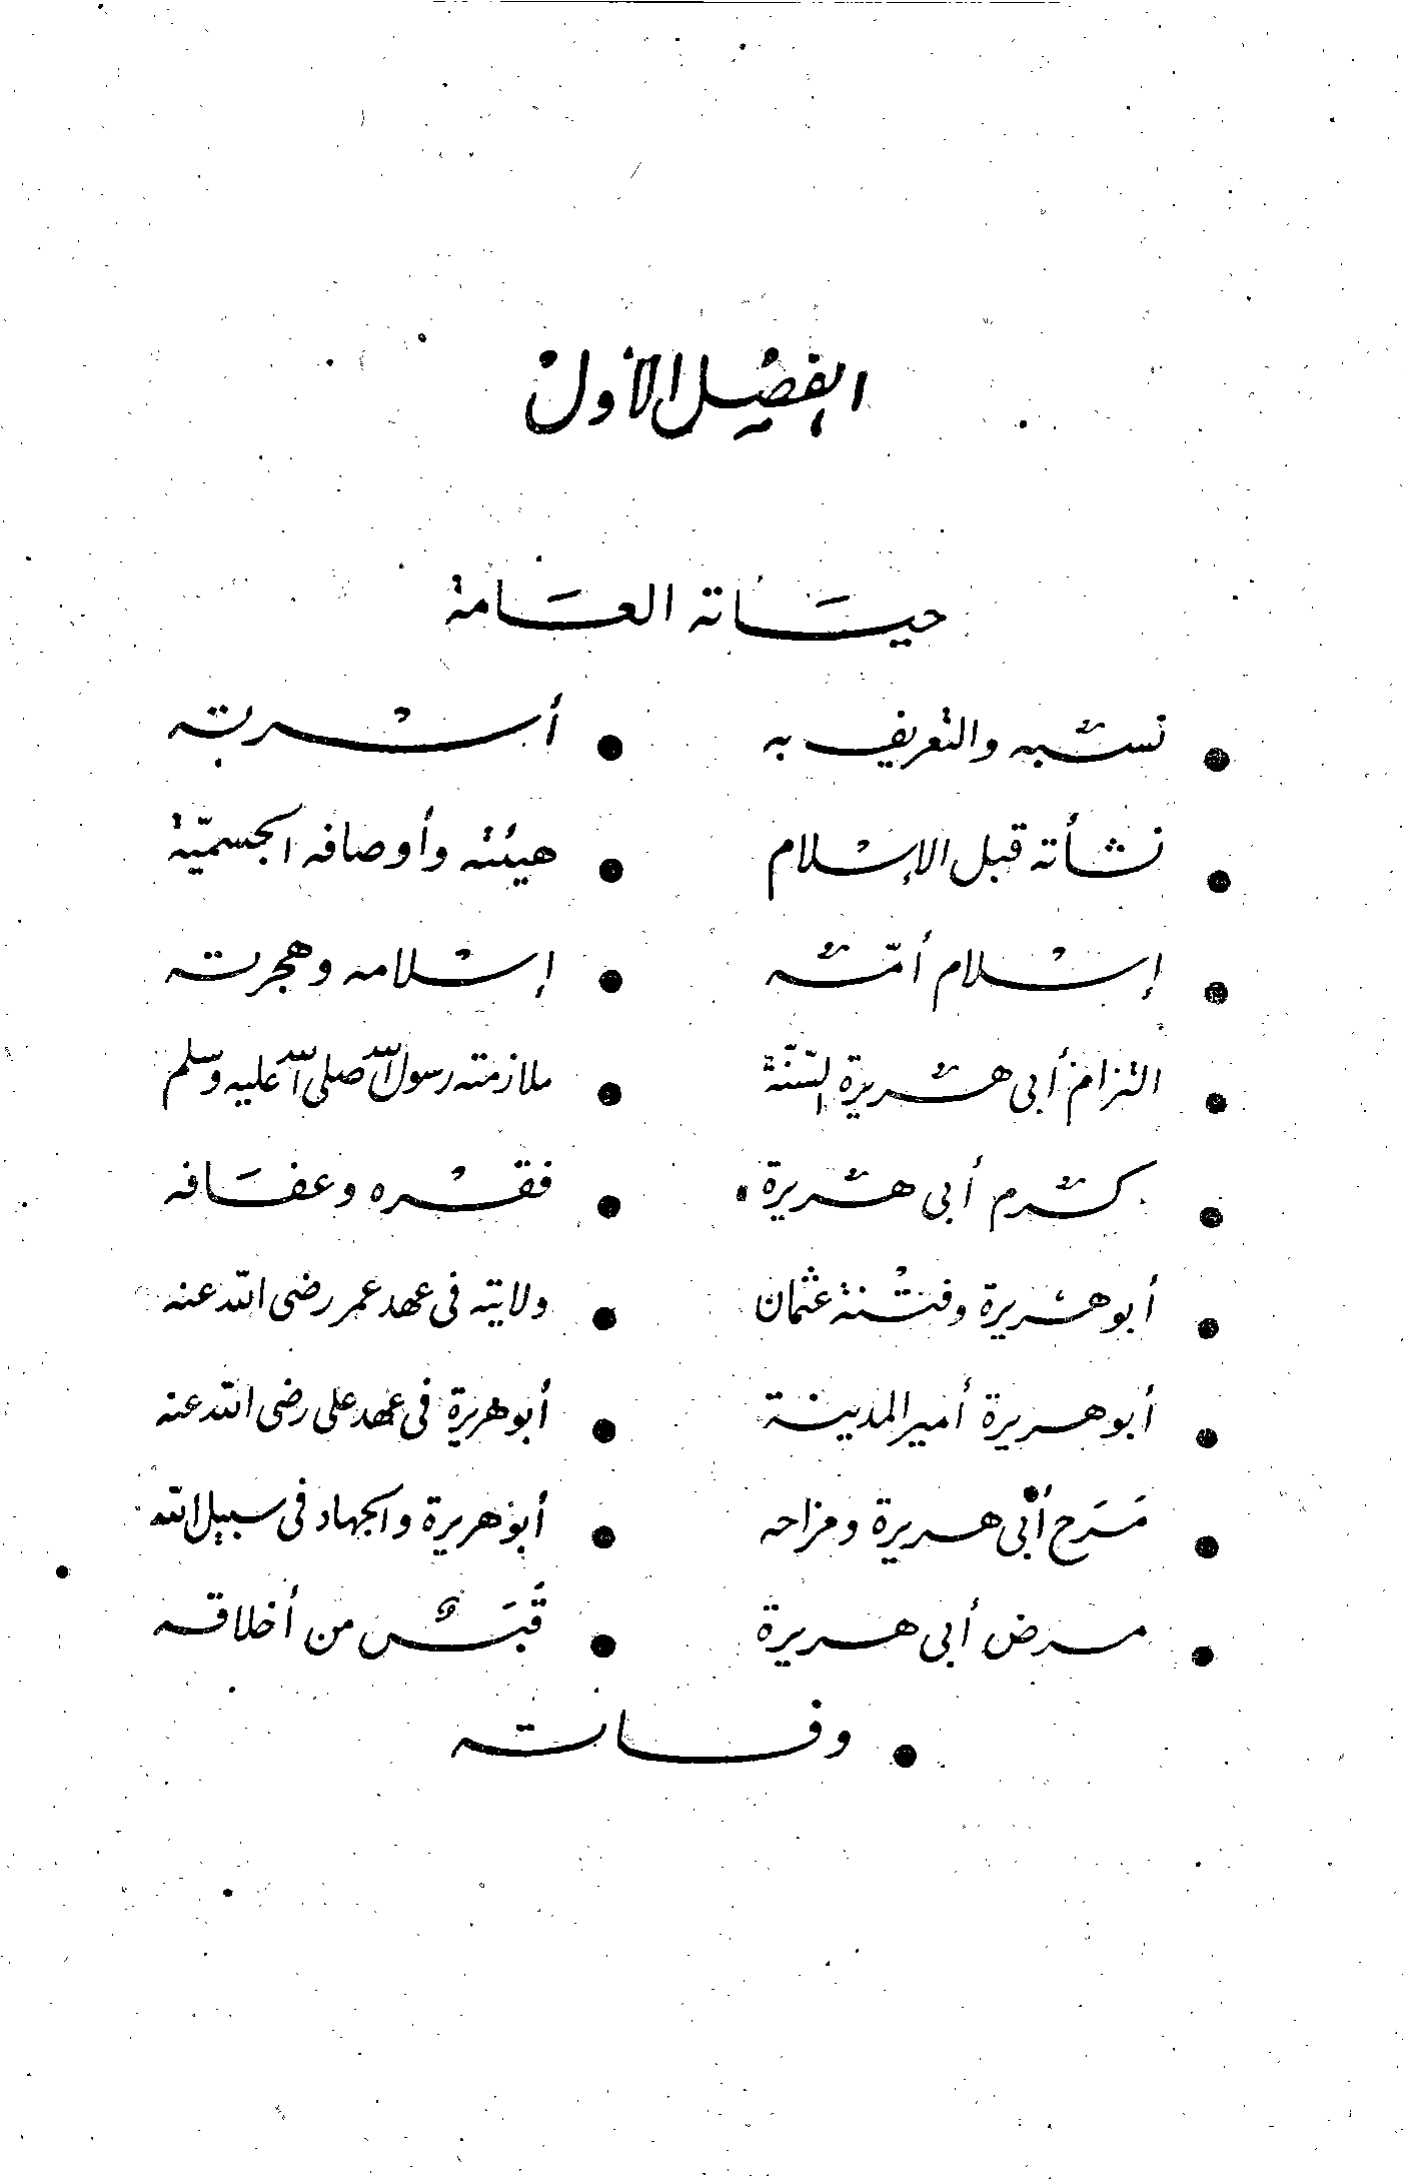 الفصل الأول
حياته العامة
• نسبه والتعريف به • أسرته
• نشأته قبل الإسلام • هيئته وأوصافه الجسميّة
• إسلام أمّه • إسلامه وهجرته
• التزام أبى هريرة السّنّة • ملازمته رسول الله صلى الله عليه وسلم
• كرم أبى هريرة • فقره وعفافه
• أبو هريرة وفتنة عثمان • ولايته فى عهد عمر رضى الله عنه
• أبو هريرة أمير المدينة • أبو هريرة فى عهد على رضى الله عنه
• مَرَح أبى هريرة ومزاحه • أبو هريرة والجهاد فى سبيل الله
• مرض أبى هريرة • قَبَسٌ من أخلاقه
• وفاته